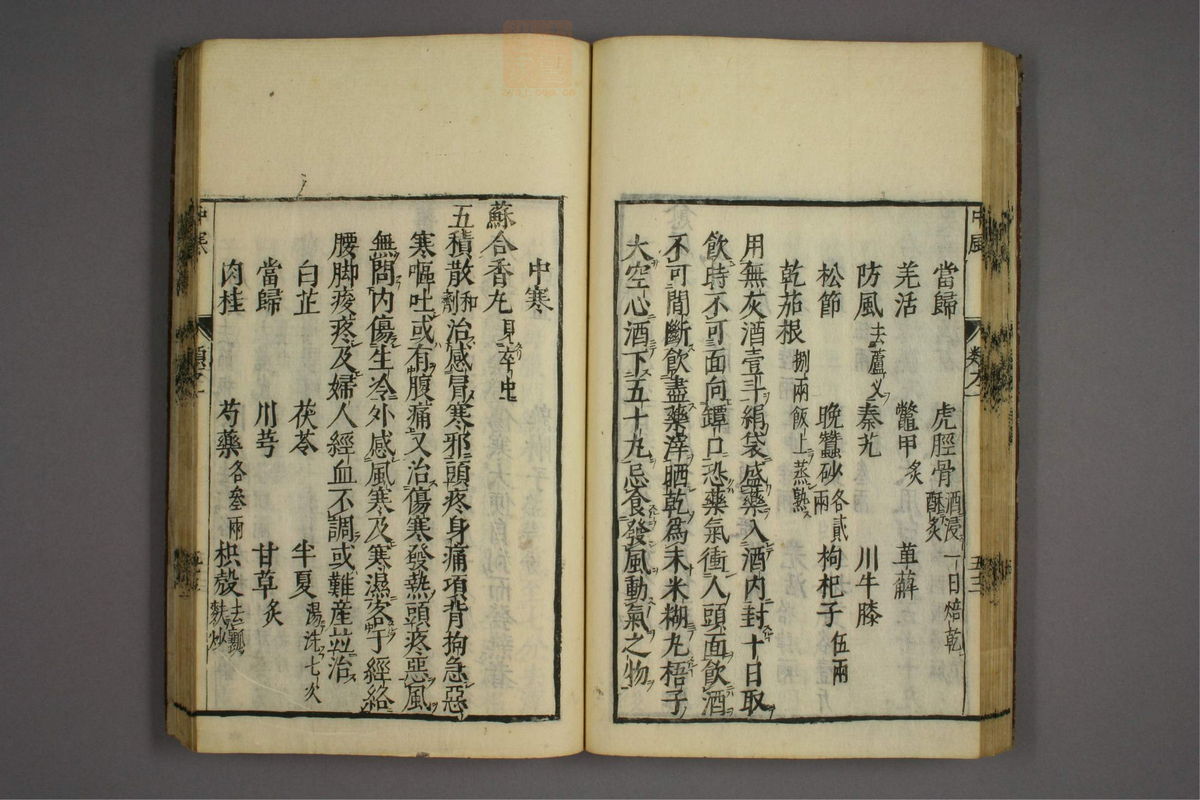 當歸 虎脛骨 酒浸一日焙乾 酥炙
羌活 鼈甲炙 萆薢
防風 去蘆叉 秦艽 川牛膝
松節 晚蠶砂 各貳兩 枸杞子 伍兩
乾茄根 捌兩飯上蒸熟
用無灰酒壹斗絹袋盛藥入酒内封十日取
飲時不可面向鐔口恐藥氣衝人頭面飲酒
不可間斷飲盡藥滓晒乾爲末米糊丸梧子
大空心酒下五十丸忌食發風動氣之物
中風
中寒
中寒
蘇合香丸 見卒中
五積散 和劑 治感冒寒邪頭疼身痛項背拘急惡
寒嘔吐或有腹痛又治傷寒發熱頭疼惡風
無問内傷生冷外感風寒及寒濕客于經絡
腰脚痠疼及婦人經血不調或難産並治
白芷 茯苓 半夏 湯洗七次
當歸 川芎 甘草炙
肉桂 芍藥 各叁兩 枳殼 去瓤麩炒